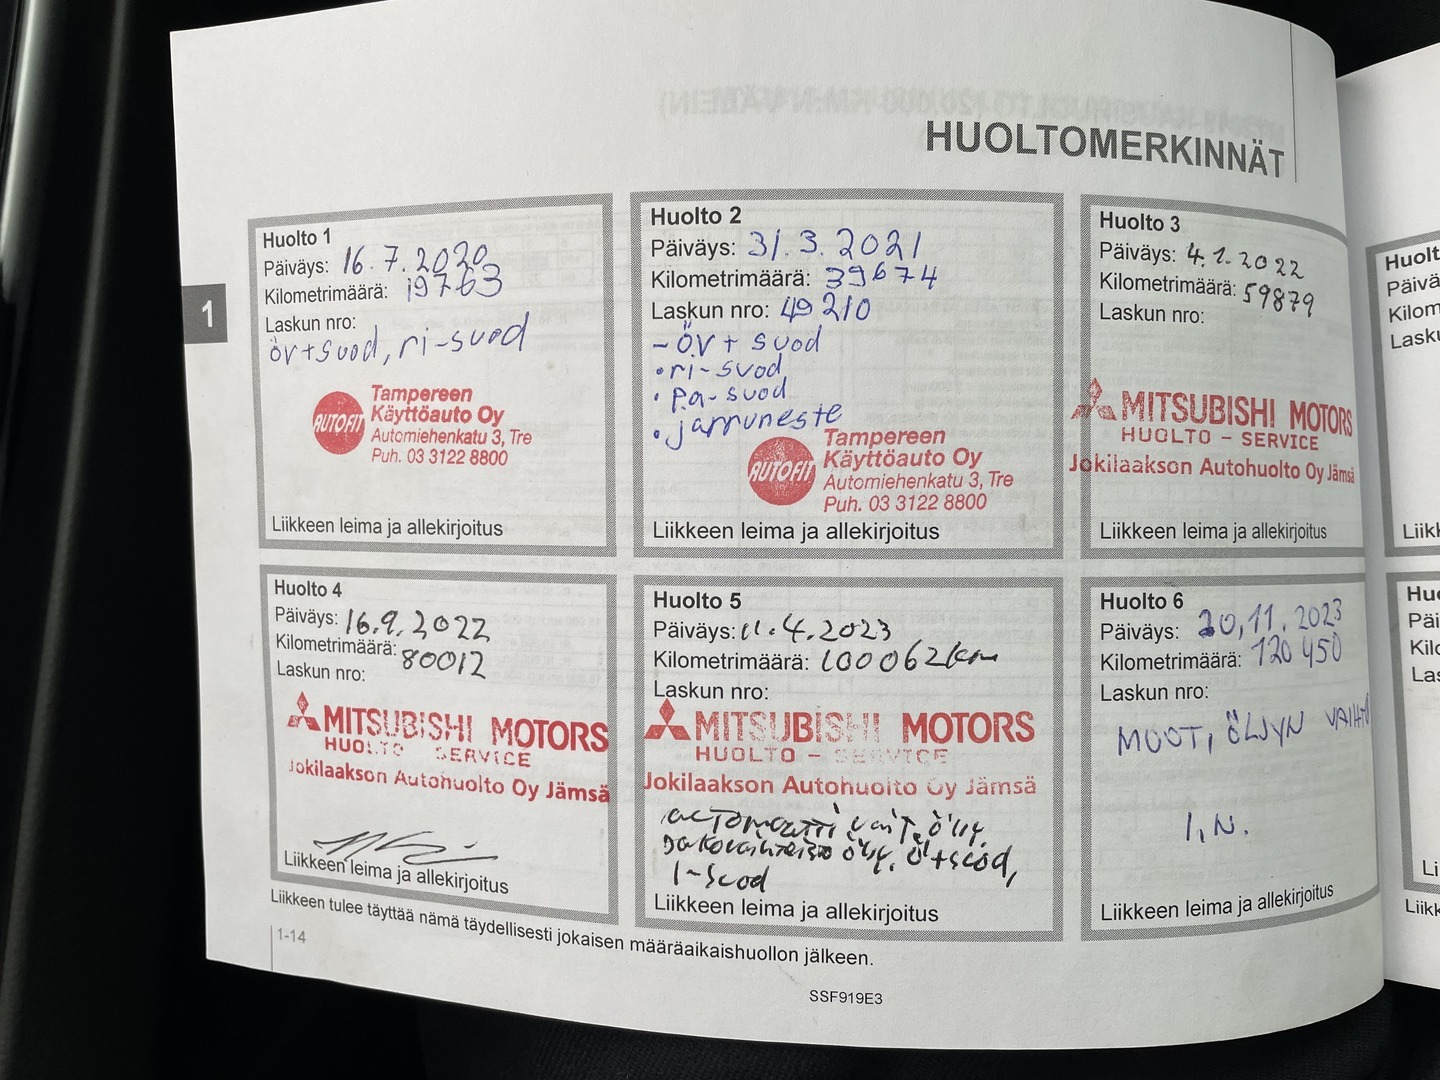 HUOLTOMERKINNÄT
1
Huolto 1
Päiväys: 16.7.2020
Kilometrimäärä: 19763
Laskun nro:
öv+suod, ri-suod
AUTOFIT
Tampereen
Käyttöauto Oy
Automiehenkatu 3, Tre
Puh. 03 3122 8800
Liikkeen leima ja allekirjoitus
Huolto 2
Päiväys: 31.3.2021
Kilometrimäärä: 39674
Laskun nro: 49210
- öv + suod
• ri-suod
• pa-suod
• jarruneste
AUTOFIT
Tampereen
Käyttöauto Oy
Automiehenkatu 3, Tre
Puh. 03 3122 8800
Liikkeen leima ja allekirjoitus
Huolto 3
Päiväys: 4.1.2022
Kilometrimäärä: 59879
Laskun nro:
MITSUBISHI MOTORS
HUOLTO - SERVICE
Jokilaakson Autohuolto Oy Jämsä
Liikkeen leima ja allekirjoitus
Huolto 4
Päiväys: 16.9.2022
Kilometrimäärä: 80012
Laskun nro:
MITSUBISHI MOTORS
HUOLTO SERVICE
Jokilaakson Autohuolto Oy Jämsä
Liikkeen leima ja allekirjoitus
Huolto 5
Päiväys: 11.4.2023
Kilometrimäärä: 100062km
Laskun nro:
MITSUBISHI MOTORS
HUOLTO - SERVICE
Jokilaakson Autohuolto Oy Jämsä
automaatti vaiT. öljy.
jakovaihteisto öljy. ö+suod,
I-suod
Liikkeen leima ja allekirjoitus
Huolto 6
Päiväys: 20,11.2023
Kilometrimäärä: 120 450
Laskun nro:
MOOT, ÖLJYN VAIHTO
I,N.
Liikkeen leima ja allekirjoitus
Liikkeen tulee täyttää nämä täydellisesti jokaisen määräaikaishuollon jälkeen.
1-14
SSF919E3
Huolt
Päivä
Kilom
Lasku
Liikk
Huo
Päi
Kilo
Las
Liikk